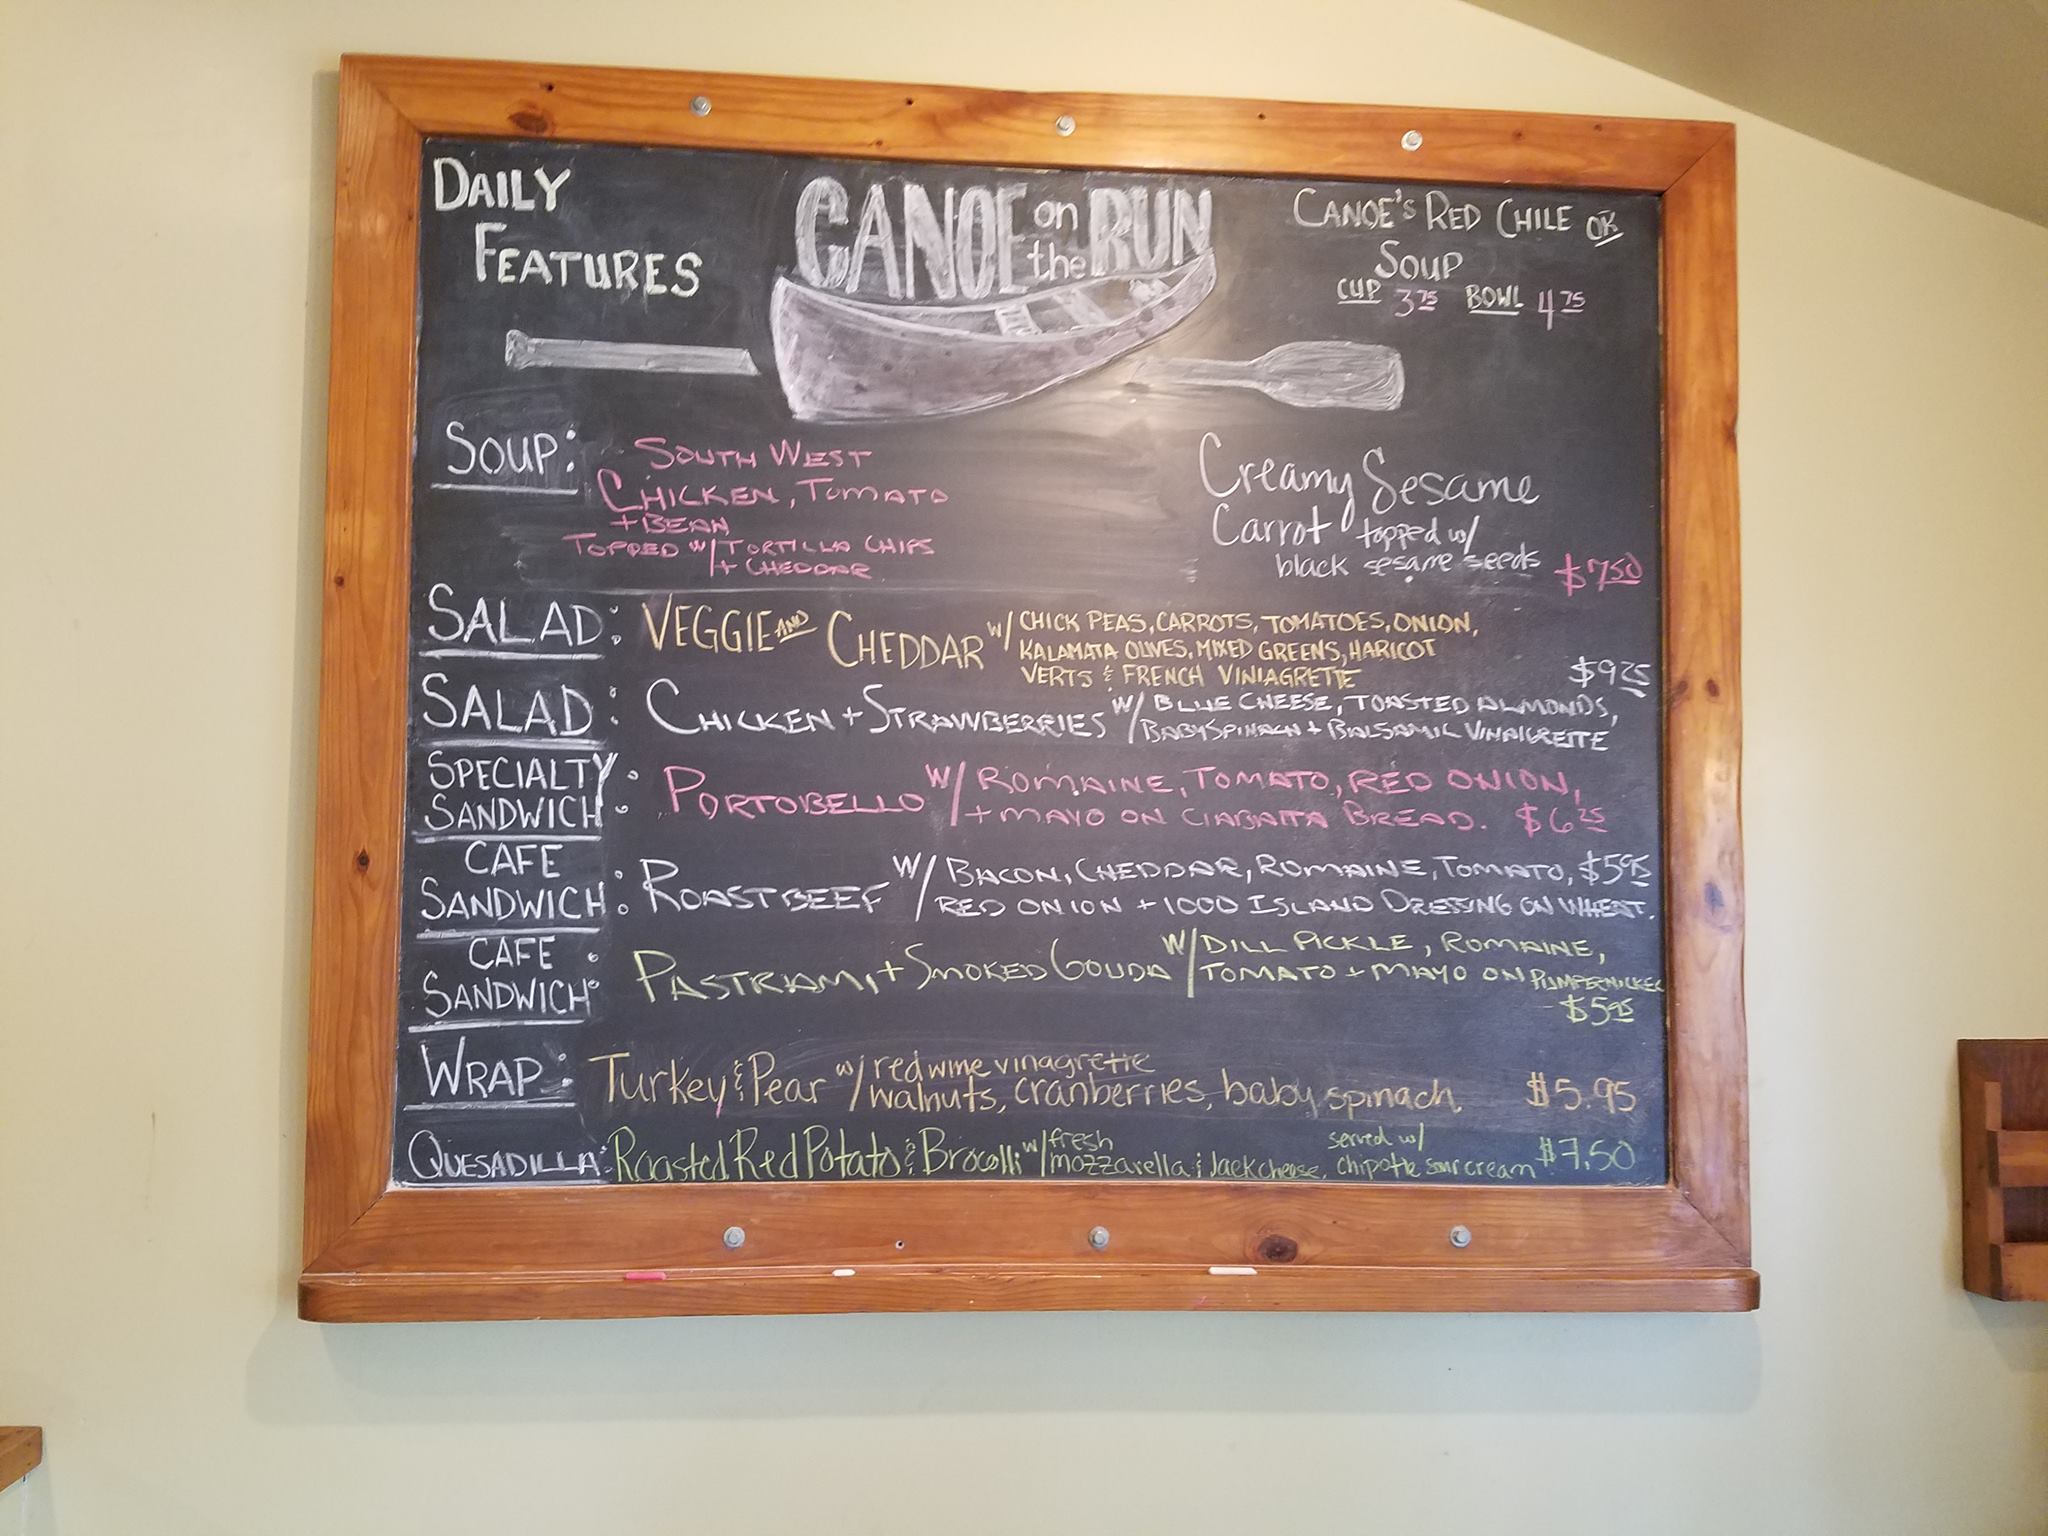 DAILY
FEATURES
CANOE on the RUN
CANOE'S RED CHILE OR
SOUP
CUP 3.75 BOWL 4.75
SOUP: SOUTH WEST
CHICKEN, TOMATO
+ BEAN
TOPPED W/ TORTILLA CHIPS
+ CHEDDAR
Creamy Sesame
Carrot topped w/
black sesame seeds $7.50
SALAD: VEGGIE AND CHEDDAR W/ CHICK PEAS, CARROTS, TOMATOES, ONION,
KALAMATA OLIVES, MIXED GREENS, HARICOT
VERTS & FRENCH VINIAGRETTE $9.25
SALAD: CHICKEN + STRAWBERRIES W/ BLUE CHEESE, TOASTED ALMONDS,
BABY SPINACH + BALSAMIC VINAIGRETTE
SPECIALTY
SANDWICH: PORTOBELLO W/ ROMAINE, TOMATO, RED ONION,
+ MAYO ON CIABATTA BREAD. $6.25
CAFE
SANDWICH: ROAST BEEF W/ BACON, CHEDDAR, ROMAINE, TOMATO, $5.95
RED ONION + 1000 ISLAND DRESSING ON WHEAT.
CAFE
SANDWICH: PASTRAMI + SMOKED GOUDA W/ DILL PICKLE, ROMAINE,
TOMATO + MAYO ON PUMPERNICKEL
$5.95
WRAP: Turkey & Pear w/ red wine vinagrette
walnuts, cranberries, baby spinach $5.95
QUESADILLA: Roasted Red Potato & Brocolli w/ fresh
mozzarella & Jack cheese, served w/
chipotle sour cream $7.50